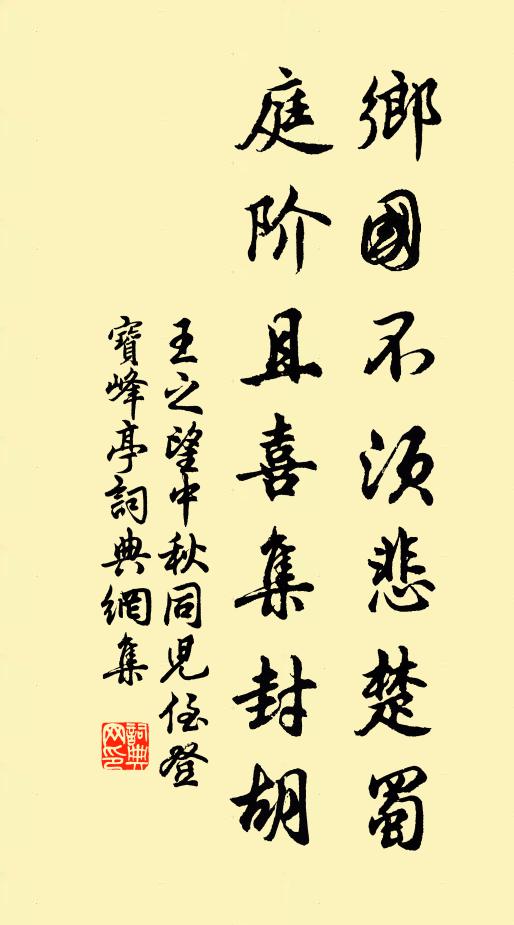 鄉國不須悲楚蜀
庭阶且喜集封胡
王之望中秋同児侄登
寶峰亭詞典網集
詞典
网印